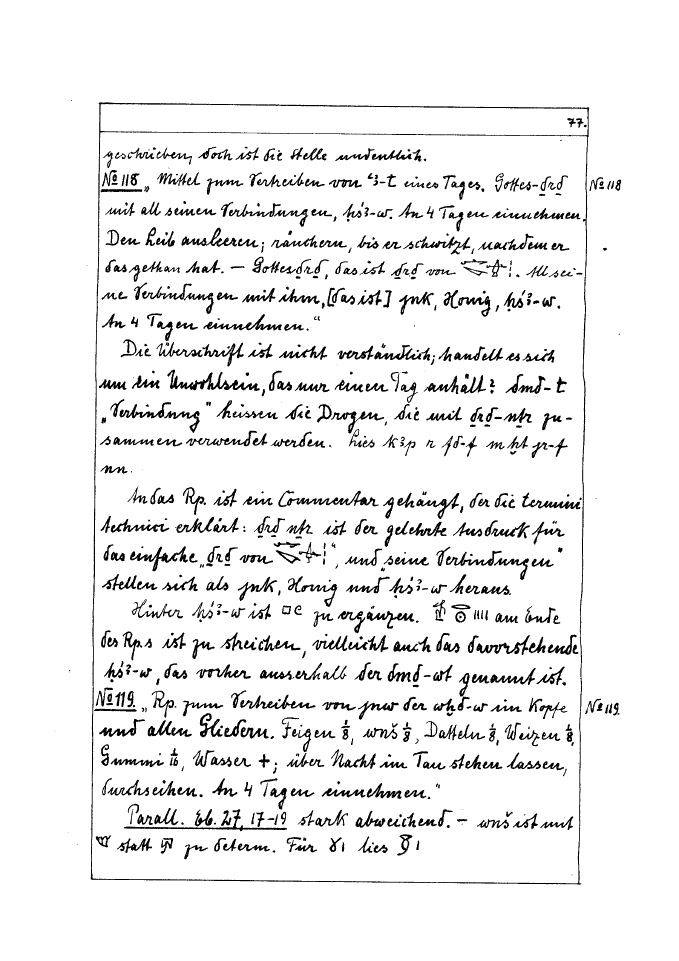 77.
geschrieben, doch ist die Stelle undeutlich.
No 118 „Mittel zum Vertreiben von ꜥꜣ-t eines Tages. Gottes-ḏrḏ No 118
mit all seinen Verbindungen, ḥśꜣ-w. An 4 Tagen einnehmen.
Den Leib ausleeren; räuchern, bis er schwitzt, nachdem er
das gethan hat. — Gottesḏrḏ, das ist ḏrḏ von . All sei-
ne Verbindungen mit ihm, [das ist] jnk, Honig, ḥśꜣ-w.
An 4 Tagen einnehmen.“
Die Überschrift ist nicht verständlich; handelt es sich
um ein Unwohlsein, das nur einen Tag anhält? dmḏ-t
„Verbindung“ heissen die Drogen, die mit ḏrḏ-nṯr zu-
sammen verwendet werden. Lies kꜣp r fd-f m ḫt jr-f
nn.
An das Rp. ist ein Commentar gehängt, der die termini
technici erklärt: ḏrḏ nṯr ist der gelehrte Ausdruck für
das einfache „ḏrḏ von “, und „seine Verbindungen“
stellen sich als jnk, Honig und ḥśꜣ-w heraus.
Hinter ḥśꜣ-w ist zu ergänzen. am Ende
des Rp.s ist zu streichen, vielleicht auch das davorstehende
ḥśꜣ-w, das vorher ausserhalb der dmḏ-wt genannt ist.
No 119. „Rp. zum Vertreiben von jnw der wḫd-w im Kopfe No 119.
und allen Gliedern. Feigen 1/8, wnš 1/8, Datteln 1/8, Weizen 1/8,
Gummi 1/16, Wasser +; über Nacht im Tau stehen lassen,
durchseihen. An 4 Tagen einnehmen.“
Parall. Eb. 27, 17-19 stark abweichend. — wnš ist mit
statt zu determ. Für lies